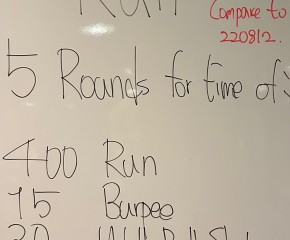 Compare to
220812.
5 Rounds for time of:
400 Run
15 Burpee